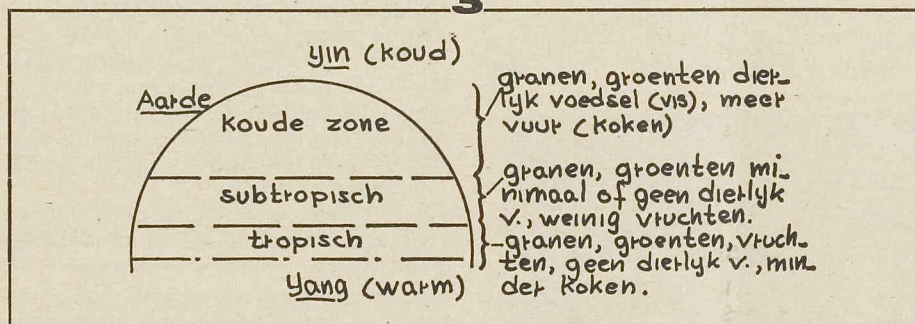 3
yin (koud)
Aarde
koude zone
subtropisch
tropisch
Yang (warm)
granen, groenten dier-
lyk voedsel (vis), meer
vuur (koken)
granen, groenten mi-
nimaal of geen dierlyk
v., weinig vruchten.
granen, groenten, vruch-
ten, geen dierlyk v., min-
der koken.